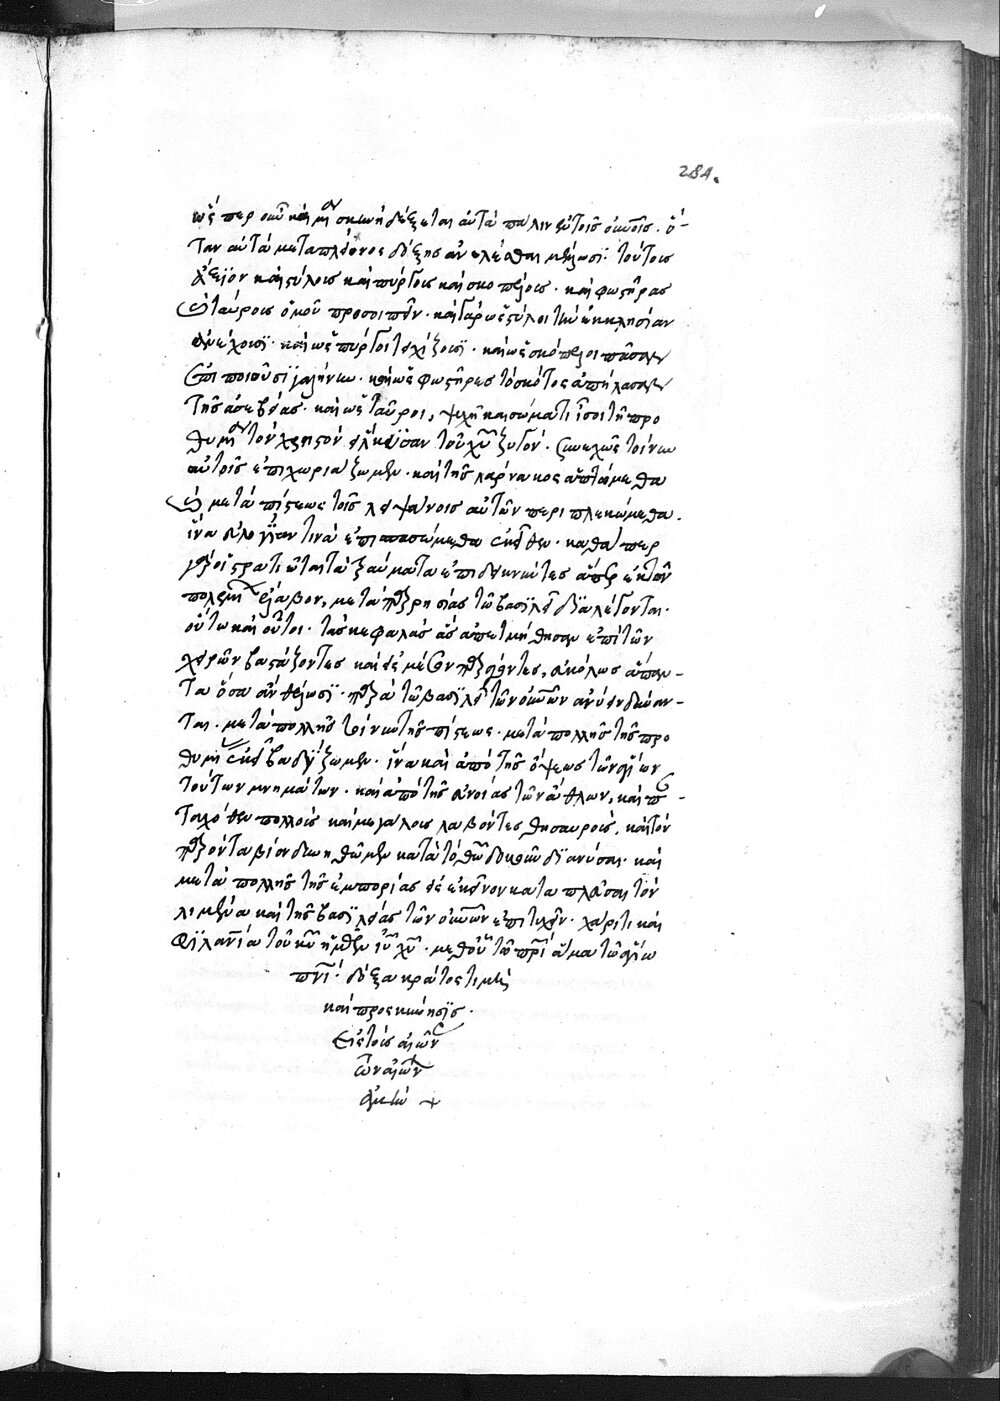 284.
ὥσπερ οὖν καὶ ἡ σκηνὴ δέξεται αὐτὰ πάλιν ἐν τοῖς οὐνοῖς. ὅ-
ταν αὐτὰ μετὰ πλείονος δόξης ἀνελέσθαι μέλλωσι· τούτοις
ἄξιον καὶ στύλοις καὶ πύργοις καὶ σκοπέλοις· καὶ φωστῆρας
καὶ ταύροις ὁμοῦ προσειπεῖν· καὶ γὰρ ὡς στύλοι τὴν ἐκκλησίαν
ἀνέχουσι· καὶ ὡς πύργοι τειχίζουσι· καὶ ὡς σκόπελοι πᾶσαν
ἐπιποιοῦσι γαλήνην· καὶ ὡς φωστῆρες τὸ σκότος ἀπήλασαν
τῆς ἀσεβείας· καὶ ὡς ταῦροι, ψυχῇ καὶ σώματι ἴσοι τῇ προ
θυμίᾳ τὸν χρηστὸν εἵλκυσαν τοῦ χυ ζυγόν· συνεχῶς τοίνυν
αὐτοῖς ἐπιχωριάζωμεν· καὶ τῆς λάρνακος ἁπτώμεθα
καὶ μετὰ πίστεως τοῖς λειψάνοις αὐτῶν περιπλεκώμεθα.
ἵνα εὐλογίαν τινὰ ἐπισπασώμεθα ἐκεῖθεν· καθάπερ
γὰρ οἱ στρατιῶται τὰ τραύματα ἐπιδεικνύντες ἅπερ ἐκ τῶν
πολεμίων ἔλαβον, μετὰ παρρησίας τῷ βασιλεῖ διαλέγονται·
οὕτω καὶ οὗτοι· τὰς κεφαλὰς ἃς ἀπετμήθησαν ἐπὶ τῶν
χειρῶν βαστάζοντες καὶ εἰς μέσον παρελθόντες, εὐκόλως ἅπαν-
τα ὅσα ἂν θέλωσι· παρὰ τῷ βασιλεῖ τῶν οὐνῶν ἀνύειν δύναν-
ται· μετὰ πολλῆς τοίνυν τῆς πίστεως· μετὰ πολλῆς τῆς προ
θυμίας ἐκεῖ βαδίζωμεν· ἵνα καὶ ἀπὸ τῆς ὄψεως τῶν ἁγίων
τούτων μνημάτων· καὶ ἀπὸ τῆς ἐννοίας τῶν ἄθλων, καὶ παν-
ταχόθεν πολλοὺς καὶ μεγάλους λαβόντες θησαυρούς, καὶ τὸν
παρόντα βίον δυνηθῶμεν κατὰ τὸ θῶ δοκοῦν διανύσαι· καὶ
μετὰ πολλῆς τῆς ἐμπορίας εἰς ἐκεῖνον καταπλεῦσαι τὸν
λιμένα καὶ τῆς βασιλείας τῶν οὐνῶν ἐπιτυχεῖν· χάριτι καὶ
φιλανία τοῦ κυ ἡμῶν ιυ χυ· μεθ' οὗ τῷ πρι ἅμα τῷ ἁγίω
πνι· δόξα κράτος τιμὴ
καὶ προσκύνησις·
εἰς τοὺς αἰῶν
τῶν αἰών
ἀμήν +